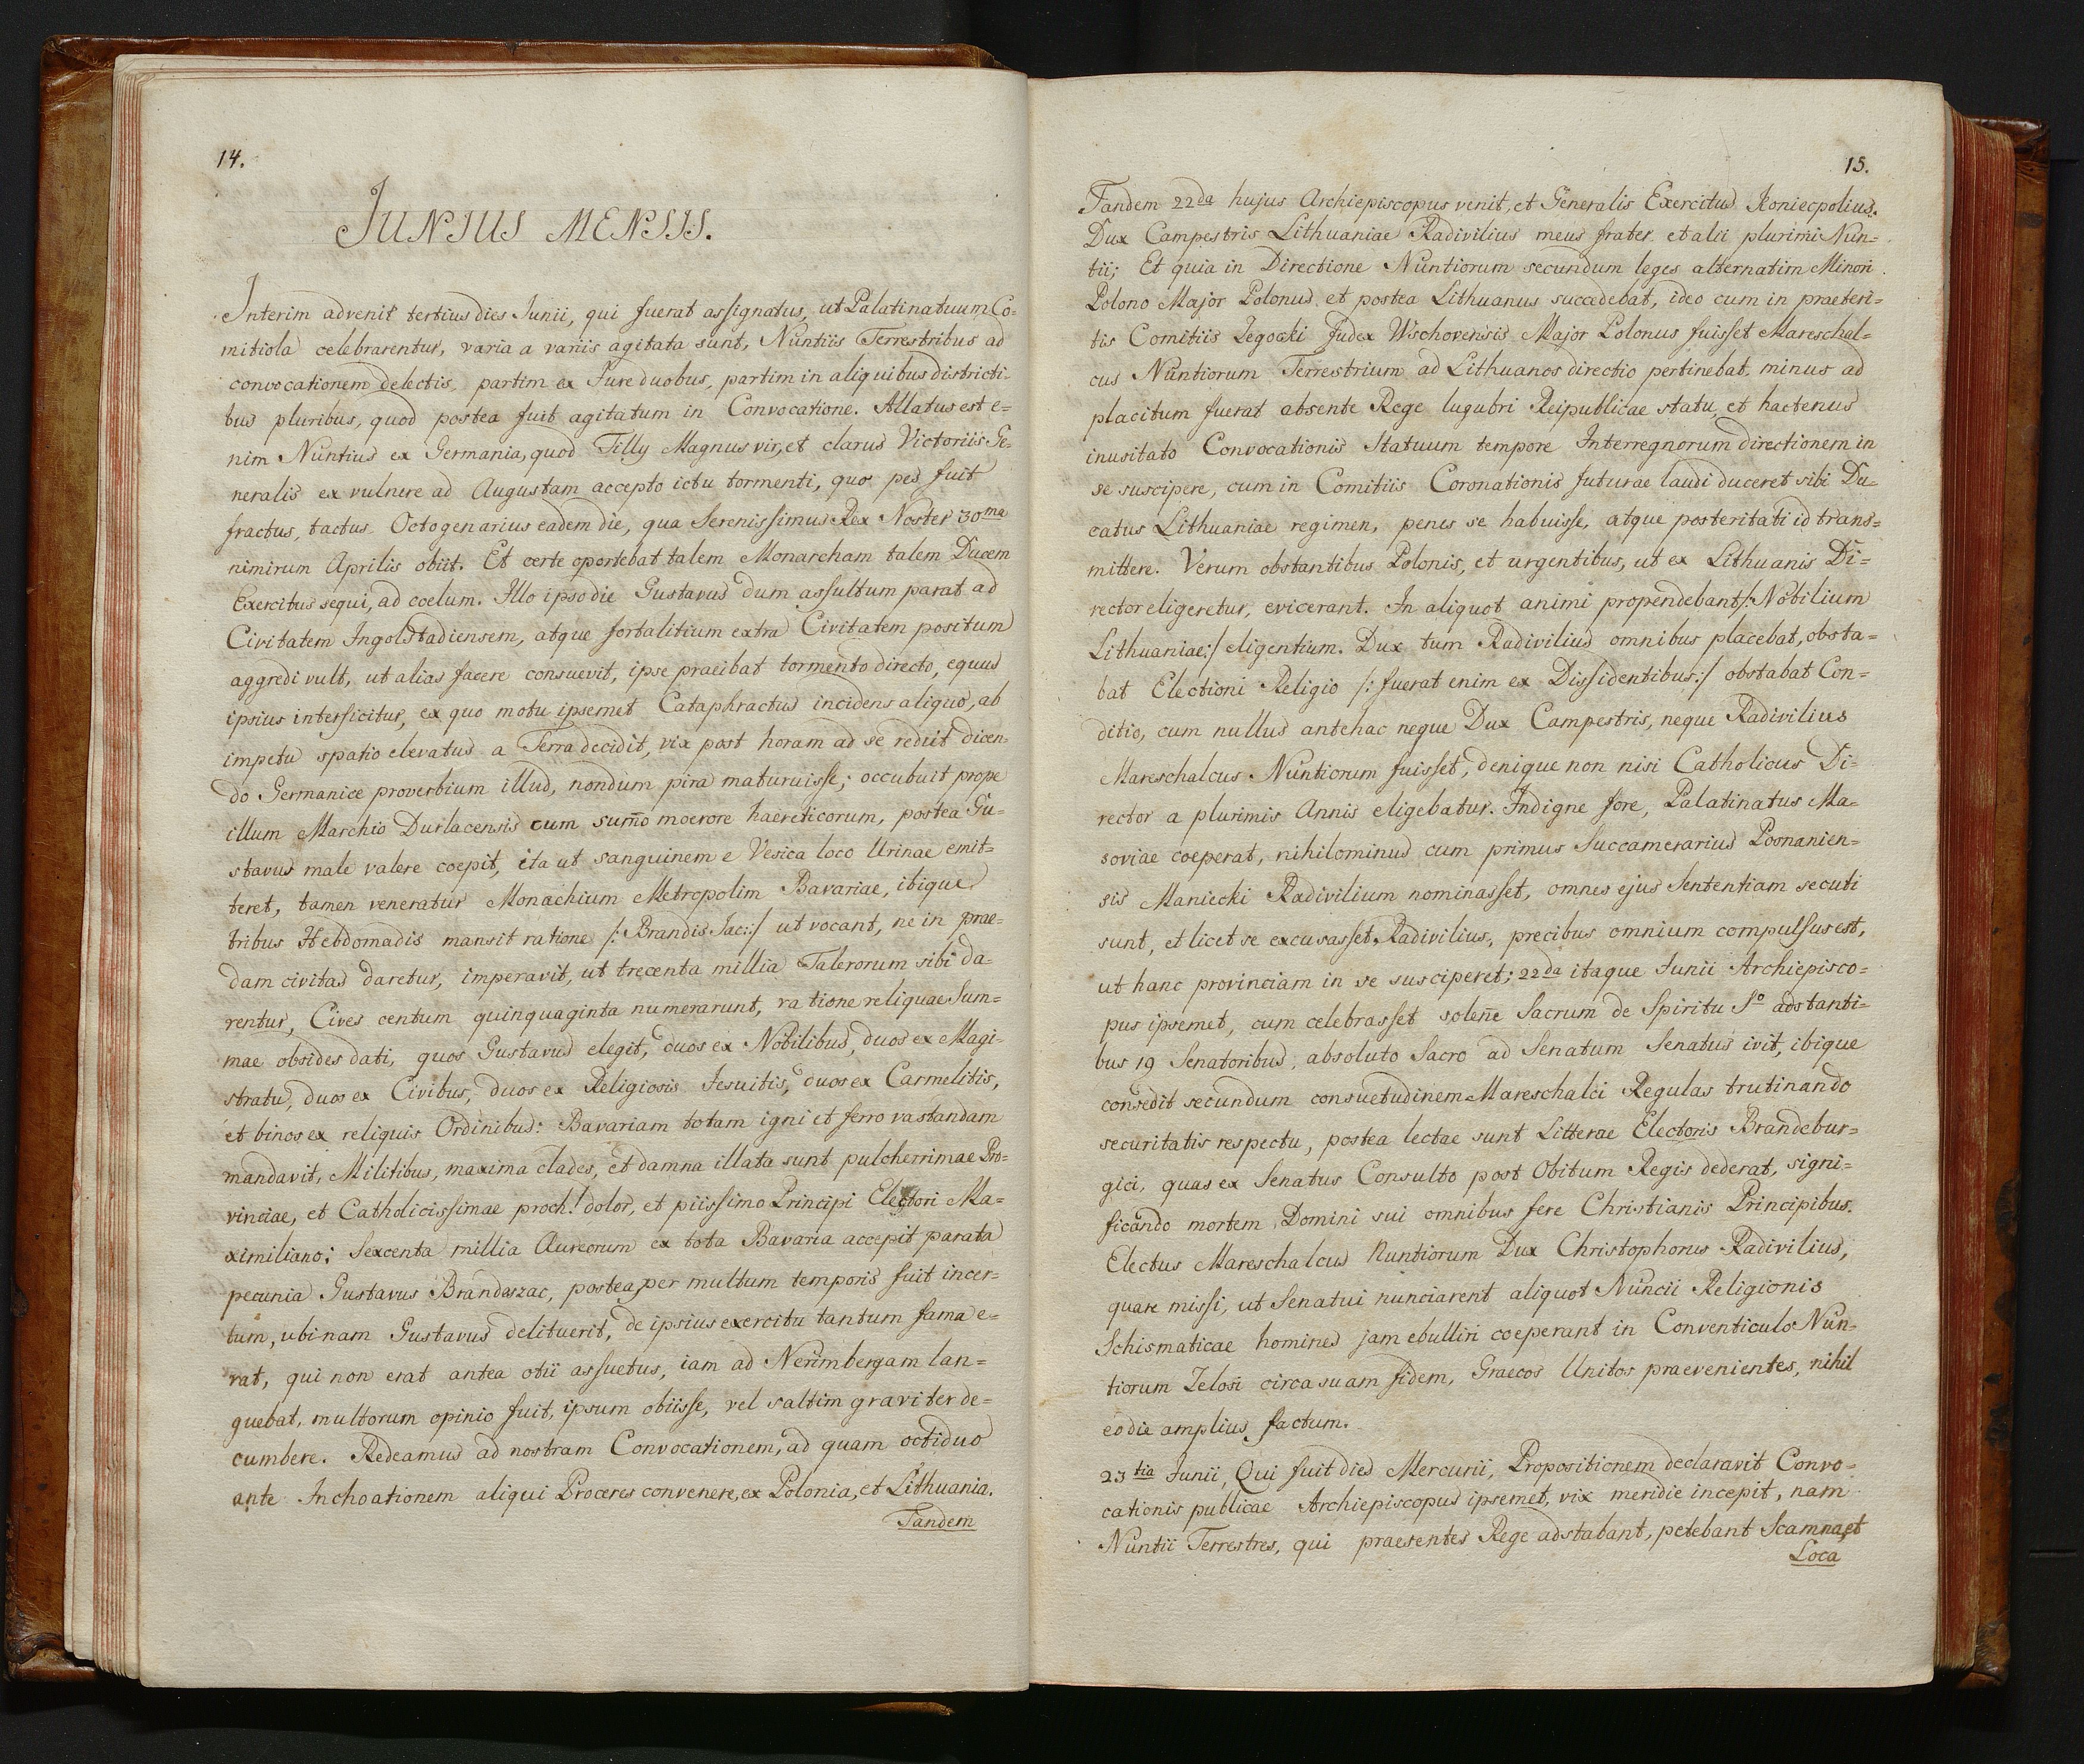 14.
JUNIUS MENSIS.
Interim advenit tertius dies Junii, qui fuerat assignatus, ut Palatinatuum Co=
mitiola celebrarentur, varia a variis agitata sunt, Nuntiis Terrestribus ad
convocationem delectis, partim ex Jure duobus, partim in aliquibus districti-
bus pluribus, quod postea fuit agitatum in Convocatione. Allatus est e=
nim Nuntius ex Germania, quod Tilly Magnus vir, et clarus Victoriis Ge=
neralis ex vulnere ad Augustam accepto ictu tormenti, quo pes fuit
fractus, tactus Octogenarius eadem die, qua Serenissimus Rex Noster 30ma
nimirum Aprilis obiit. Et certe oportebat talem Monarcham talem Ducem
Exercitus sequi, ad coelum. Illo ipso die Gustavus dum assultum parat ad
Civitatem Ingolstadiensem, atque fortalitium extra Civitatem positum
aggredi vult, ut alias facere consuevit, ipse praeibat tormento directo, equus
ipsius interficitur, ex quo motu ipsemet Cataphractus incidens aliquo, ab
impetu spatio elevatus a Terra decidit, vix post horam ad se rediit dicen-
do Germanice proverbium illud, nondum pira maturuisse; occubuit prope
illum Marchio Durlacensis cum sum̄o moerore haereticorum, postea Gu=
stavus male valere coepit, ita ut sanguinem e Vesica loco Urinae emit=
teret, tamen veneratur Monachium Metropolim Bavariae, ibique
tribus Hebdomadis mansit ratione /: Brandis Jac:/ ut vocant, ne in prae=
dam civitas daretur, imperavit, ut trecenta millia Talerorum sibi da=
rentur, Cives centum quinquaginta numerarunt, ratione reliquae Sum=
mae obsides dati, quos Gustavus elegit, duos ex Nobilibus, duos ex Magi=
stratu, duos ex Civibus, duos ex Religiosis Jesuitis, duos ex Carmelitis,
et binos ex reliquis Ordinibus: Bavariam totam igni et ferro vastandam
mandavit, Militibus, maxima clades, et damna illata sunt pulcherrimae Pro=
vinciae, et Catholicissimae proch! dolor, et piissimo Principi Electori Ma=
ximiliano; Sexcenta millia Aureorum ex tota Bavaria accepit parata
pecunia Gustavus Brandeszac, postea, per multum temporis fuit incer=
tum, ubinam Gustavus delituerit, de ipsius exercitu tantum fama e=
rat, qui non erat antea otii assuetus, iam ad Nerimbergam lan=
guebat, multorum opinio fuit, ipsum obiisse, vel saltim graviter de=
cumbere. Redeamus ad nostram Convocationem, ad quam octiduo
ante Inchoationem aliqui Proceres convenere, ex Polonia, et Lithuania.
Tandem
15.
Tandem 22da hujus Archiepiscopus venit, et Generalis Exercitus Koniecpolius.
Dux Campestris Lithuaniae Radivilius meus frater et alii plurimi Nun=
tii; Et quia in Directione Nuntiorum secundum leges alternatim Minori
Polono Major Polonus et postea Lithuanus succedebat, ideo cum in praeteri=
tis Comitiis Zegocki Judex Wschovensis Major Polonus fuisset Mareschal=
cus Nuntiorum Terrestrium ad Lithuanos directio pertinebat, minus ad
placitum fuerat absente Rege lugubri Reipublicae statu, et hactenus
inusitato Convocationis Statuum tempore Interregnorum directionem in
se suscipere, cum in Comitiis Coronationis futurae laudi duceret sibi Du=
catus Lithuaniae regimen, penes se habuisse, atque posteritati id trans=
mittere. Verum obstantibus Polonis, et urgentibus, ut ex Lithuanis Di=
rector eligeretur, evicerant. In aliquot animi propendebant /: Nobilium
Lithuaniae:/ eligentium. Dux tum Radivilius omnibus placebat, obsta=
bat Electioni Religio /: fuerat enim ex Dissidentibus:/ obstabat Con=
ditio, cum nullus antehac neque Dux Campestris, neque Radivilius
Mareschalcus Nuntiorum fuisset, denique non nisi Catholicus Di=
rector a plurimis Annis eligebatur. Indigne fore, Palatinatus Ma=
soviae coeperat, nihilominus cum primus Succamerarius Posnanien=
sis Maniecki Radivilium nominasset, omnes ejus Sententiam secuti
sunt, et licet se excusasset Radivilius, precibus omnium compulsus est,
ut hanc provinciam in se susciperet; 22da itaque Junii Archiepisco=
pus ipsemet, cum celebrasset solen̄e Sacrum de Spiritu So adstanti=
bus 19 Senatoribus, absoluto Sacro ad Senatum Senatus ivit, ibique
consedit secundum consuetudinem Mareschalci Regulas trutinando
securitatis respectu, postea lectae sunt Litterae Electoris Brandebur=
gici, quas ex Senatus Consulto post Obitum Regis dederat, signi=
ficando mortem Domini sui omnibus fere Christianis Principibus.
Electus Mareschalcus Nuntiorum Dux Christophorus Radivilius,
quare missi, ut Senatui nunciarent aliquot Nuncii Religionis
Schismaticae homines jam ebulliri coeperant in Conventiculo Nun=
tiorum Zelosi circa suam fidem, Graecos Unitos praevenientes, nihil
eo die amplius factum.
23tia Junii, Qui fuit dies Mercurii, Propositionem declaravit Convo=
cationis publicae Archiepiscopus ipsemet, vix meridie incepit, nam
Nuntii Terrestres, qui praesentes Rege adstabant, petebant Scamna, et
Loca